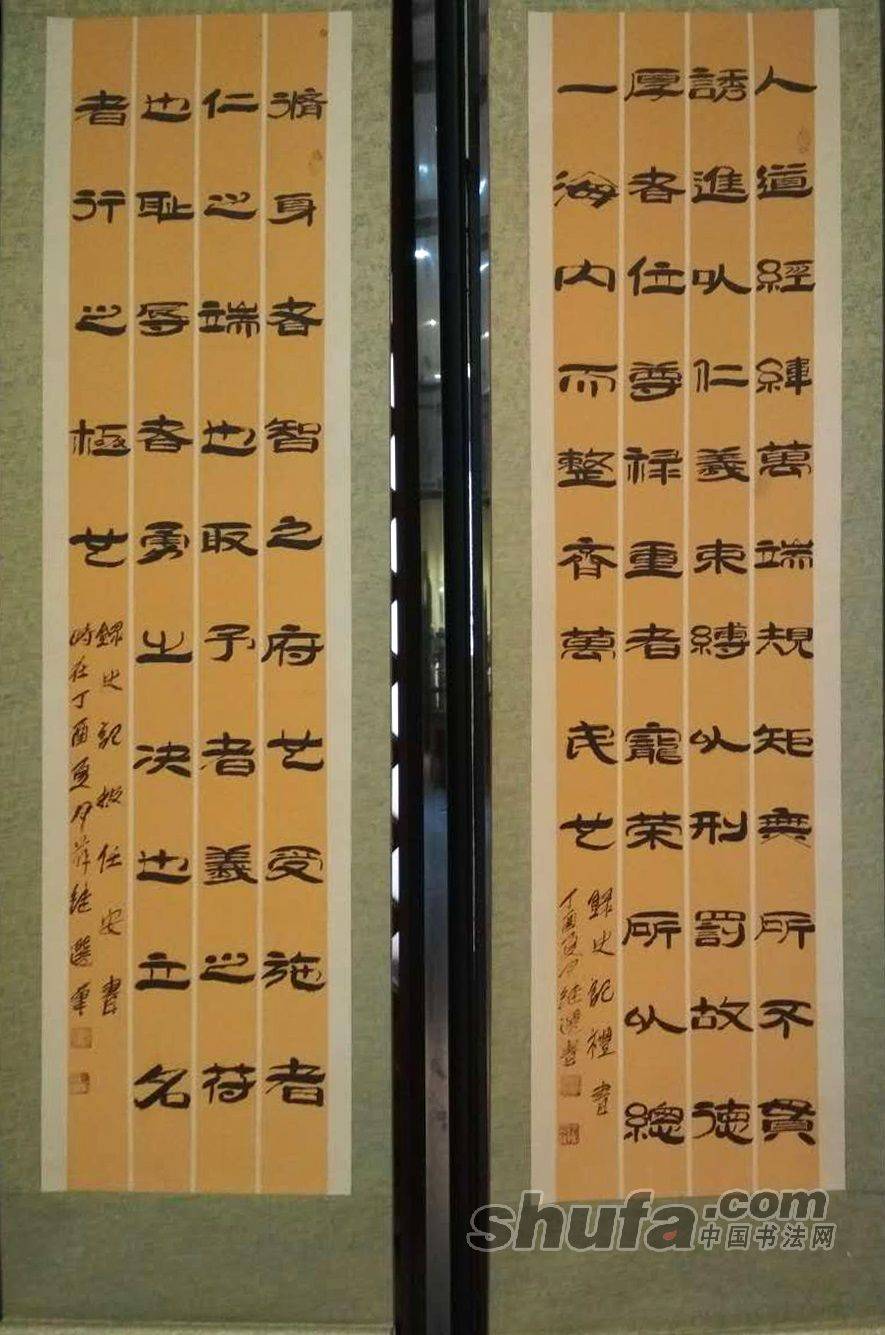 人道經緯萬端規矩無所不貫
誘進以仁義束縛以刑罰故德
厚者位尊禄重者寵荣所以總
一海内而整齊萬民也
録史記禮書
丁酉夏月继選書
脩身者智之府也受施者
仁之端也取予者義之符
也耻辱者勇之决也立名
者行之極也
録史記報任安書
時在丁酉夏月薛继選
shufa.com
中国书法网